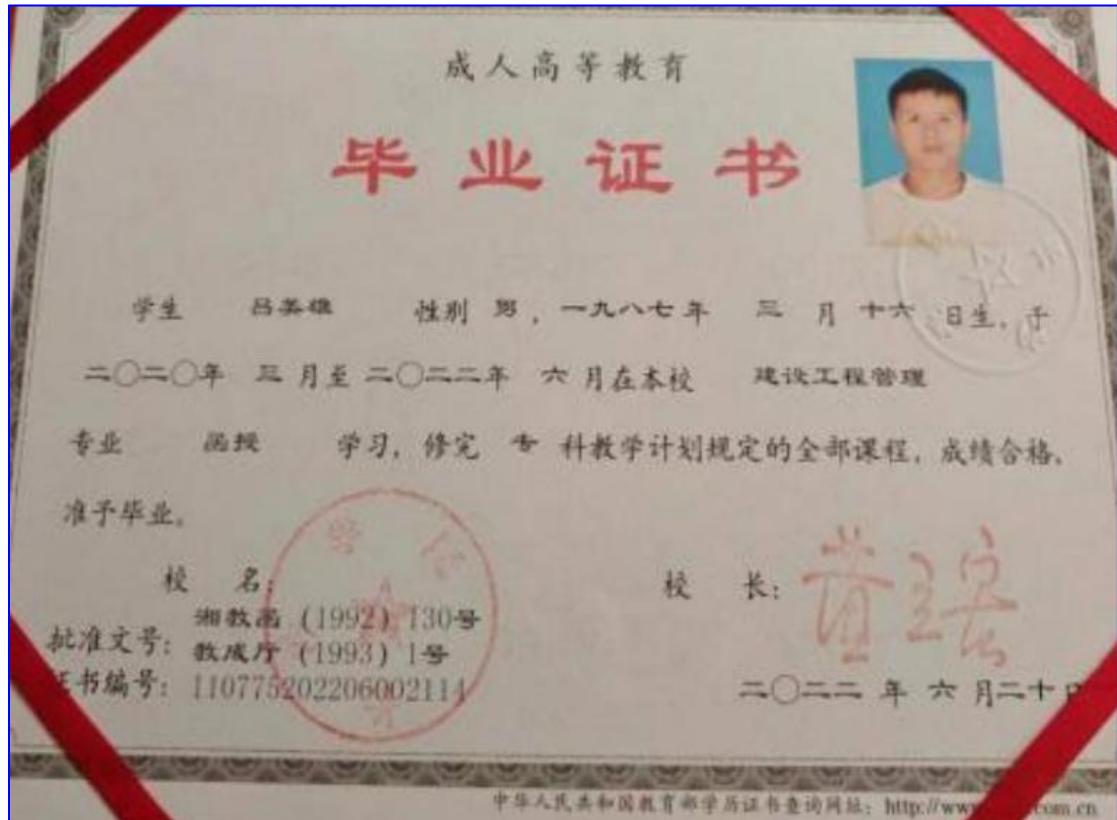 成人高等教育
毕业证书
学生 吕英雄 性别 男，一九八七年 三 月 十六 日生，于
二〇二〇年 三 月至 二〇二二年 六 月在本校 建设工程管理
专业 函授 学习，修完 专 科教学计划规定的全部课程，成绩合格，
准予毕业。
校 名：
校 长：
批准文号：湘教函 (1992) 130号
教成厅 (1993) 1号
证书编号：110775202206002114
二〇二二 年 六 月二十日
中华人民共和国教育部学历证书查询网址：http://www com.cn